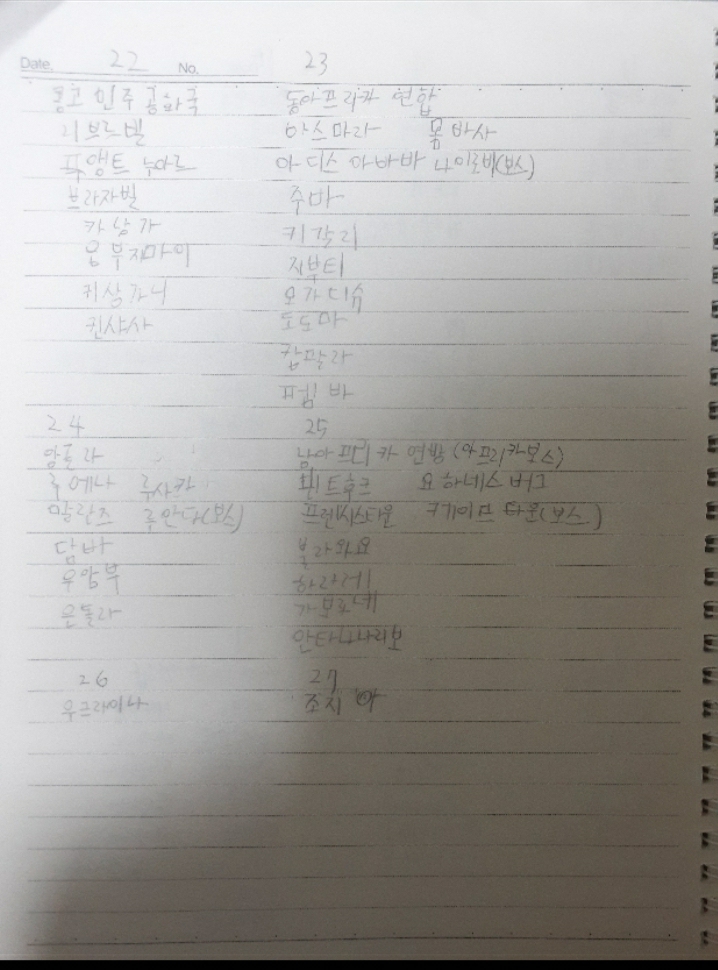 Date. 22 No. 23
콩고 민주 공화국 동아프리카 연합
리브르빌 아스마라 몸바사
푸앵트 누아르 아디스 아바바 나이로비(보스)
브라자빌 주바
카낭가 키갈리
음부지마이 지부티
키상가니 모가디슈
킨샤사 도도마
캄팔라
펨바
24 25
앙골라 남아프리카 연방 (아프리카보스)
루에나 루사카 빈트후크 요하네스버그
말란즈 루안다(보스) 프런시스타운 케이프 타운(보스)
담바 불라와요
우암부 하라레
은돌라 가보로네
안타나나리보
26 27
우크라이나 조지아